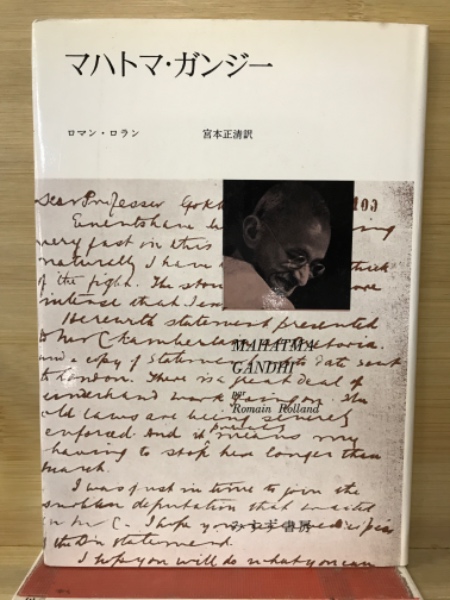 マハトマ・ガンジー
ロマン・ロラン 宮本正清訳
Dear Professor Gokh
Events have
very fast in this
naturally I have thick
of the fight. The
intense that I
Herewith statement presented
to Mr Chamberlain Pretoria.
and a copy of statement to date sent
to London. There is a great deal of
underhand work going on. The
old laws are being severely
enforced. And it means my
having to stop here longer than
March.
I was just in time to join the
deputation that waited
on Mr C. I hope you
the statement.
I hope you will do what you can
MAHATMA
GANDHI
par
Romain Rolland
みすず書房